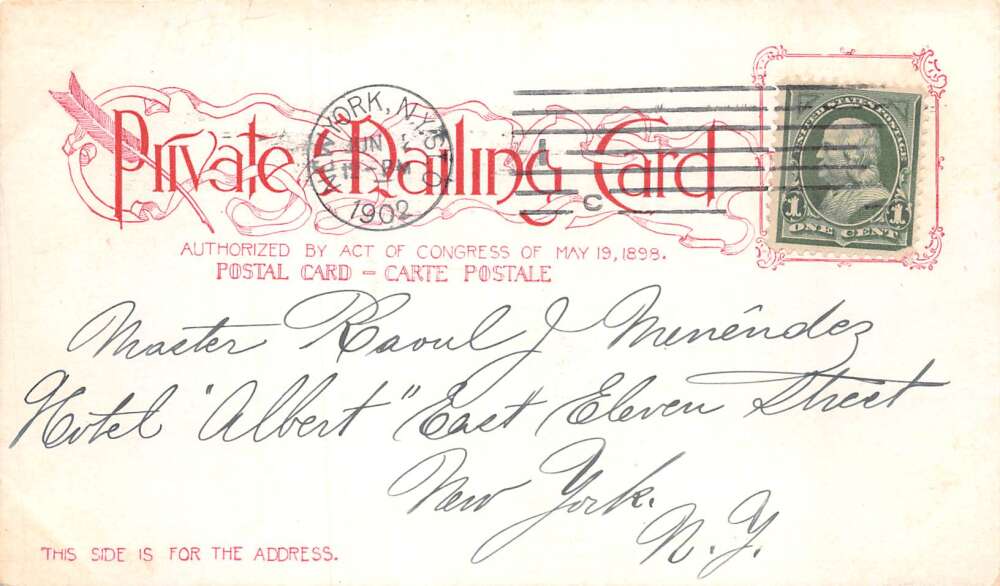 Private Mailing Card
NEW YORK, N.Y.
JUN
12 - PM
1902
C
UNITED STATES POSTAGE
1 1
ONE CENT
AUTHORIZED BY ACT OF CONGRESS OF MAY 19, 1898.
POSTAL CARD - CARTE POSTALE
Master Raoul J Menêndez
Hotel "Albert" East Eleven Street
New York.
N.Y.
THIS SIDE IS FOR THE ADDRESS.